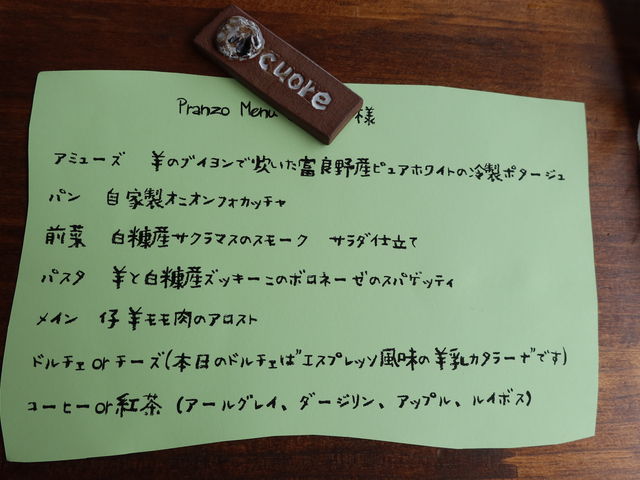 cuore
Pranzo Menu 様
アミューズ 羊のブイヨンで炊いた富良野産ピュアホワイトの冷製ポタージュ
パン 自家製オニオンフォカッチャ
前菜 白糠産サクラマスのスモーク サラダ仕立て
パスタ 羊と白糠産ズッキーニのボロネーゼのスパゲッティ
メイン 仔羊モモ肉のアロスト
ドルチェorチーズ(本日のドルチェは"エスプレッソ風味の羊乳カタラーナ"です)
コーヒーor紅茶 (アールグレイ、ダージリン、アップル、ルイボス)